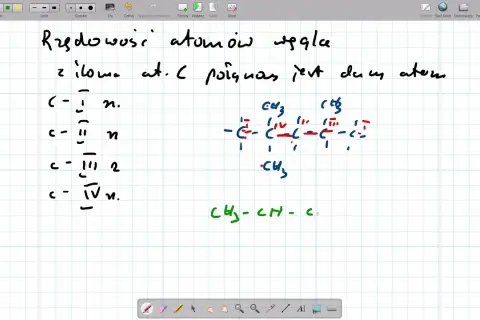 Rzędowość atomów węgla
z iloma at. C połączony jest dany atom
C - I rz.
C - II rz
C - III rz
C - IV rz.
CH3 CH3
- C - C - C - C - C -
I IV II III I
CH3
CH3 - CH - C